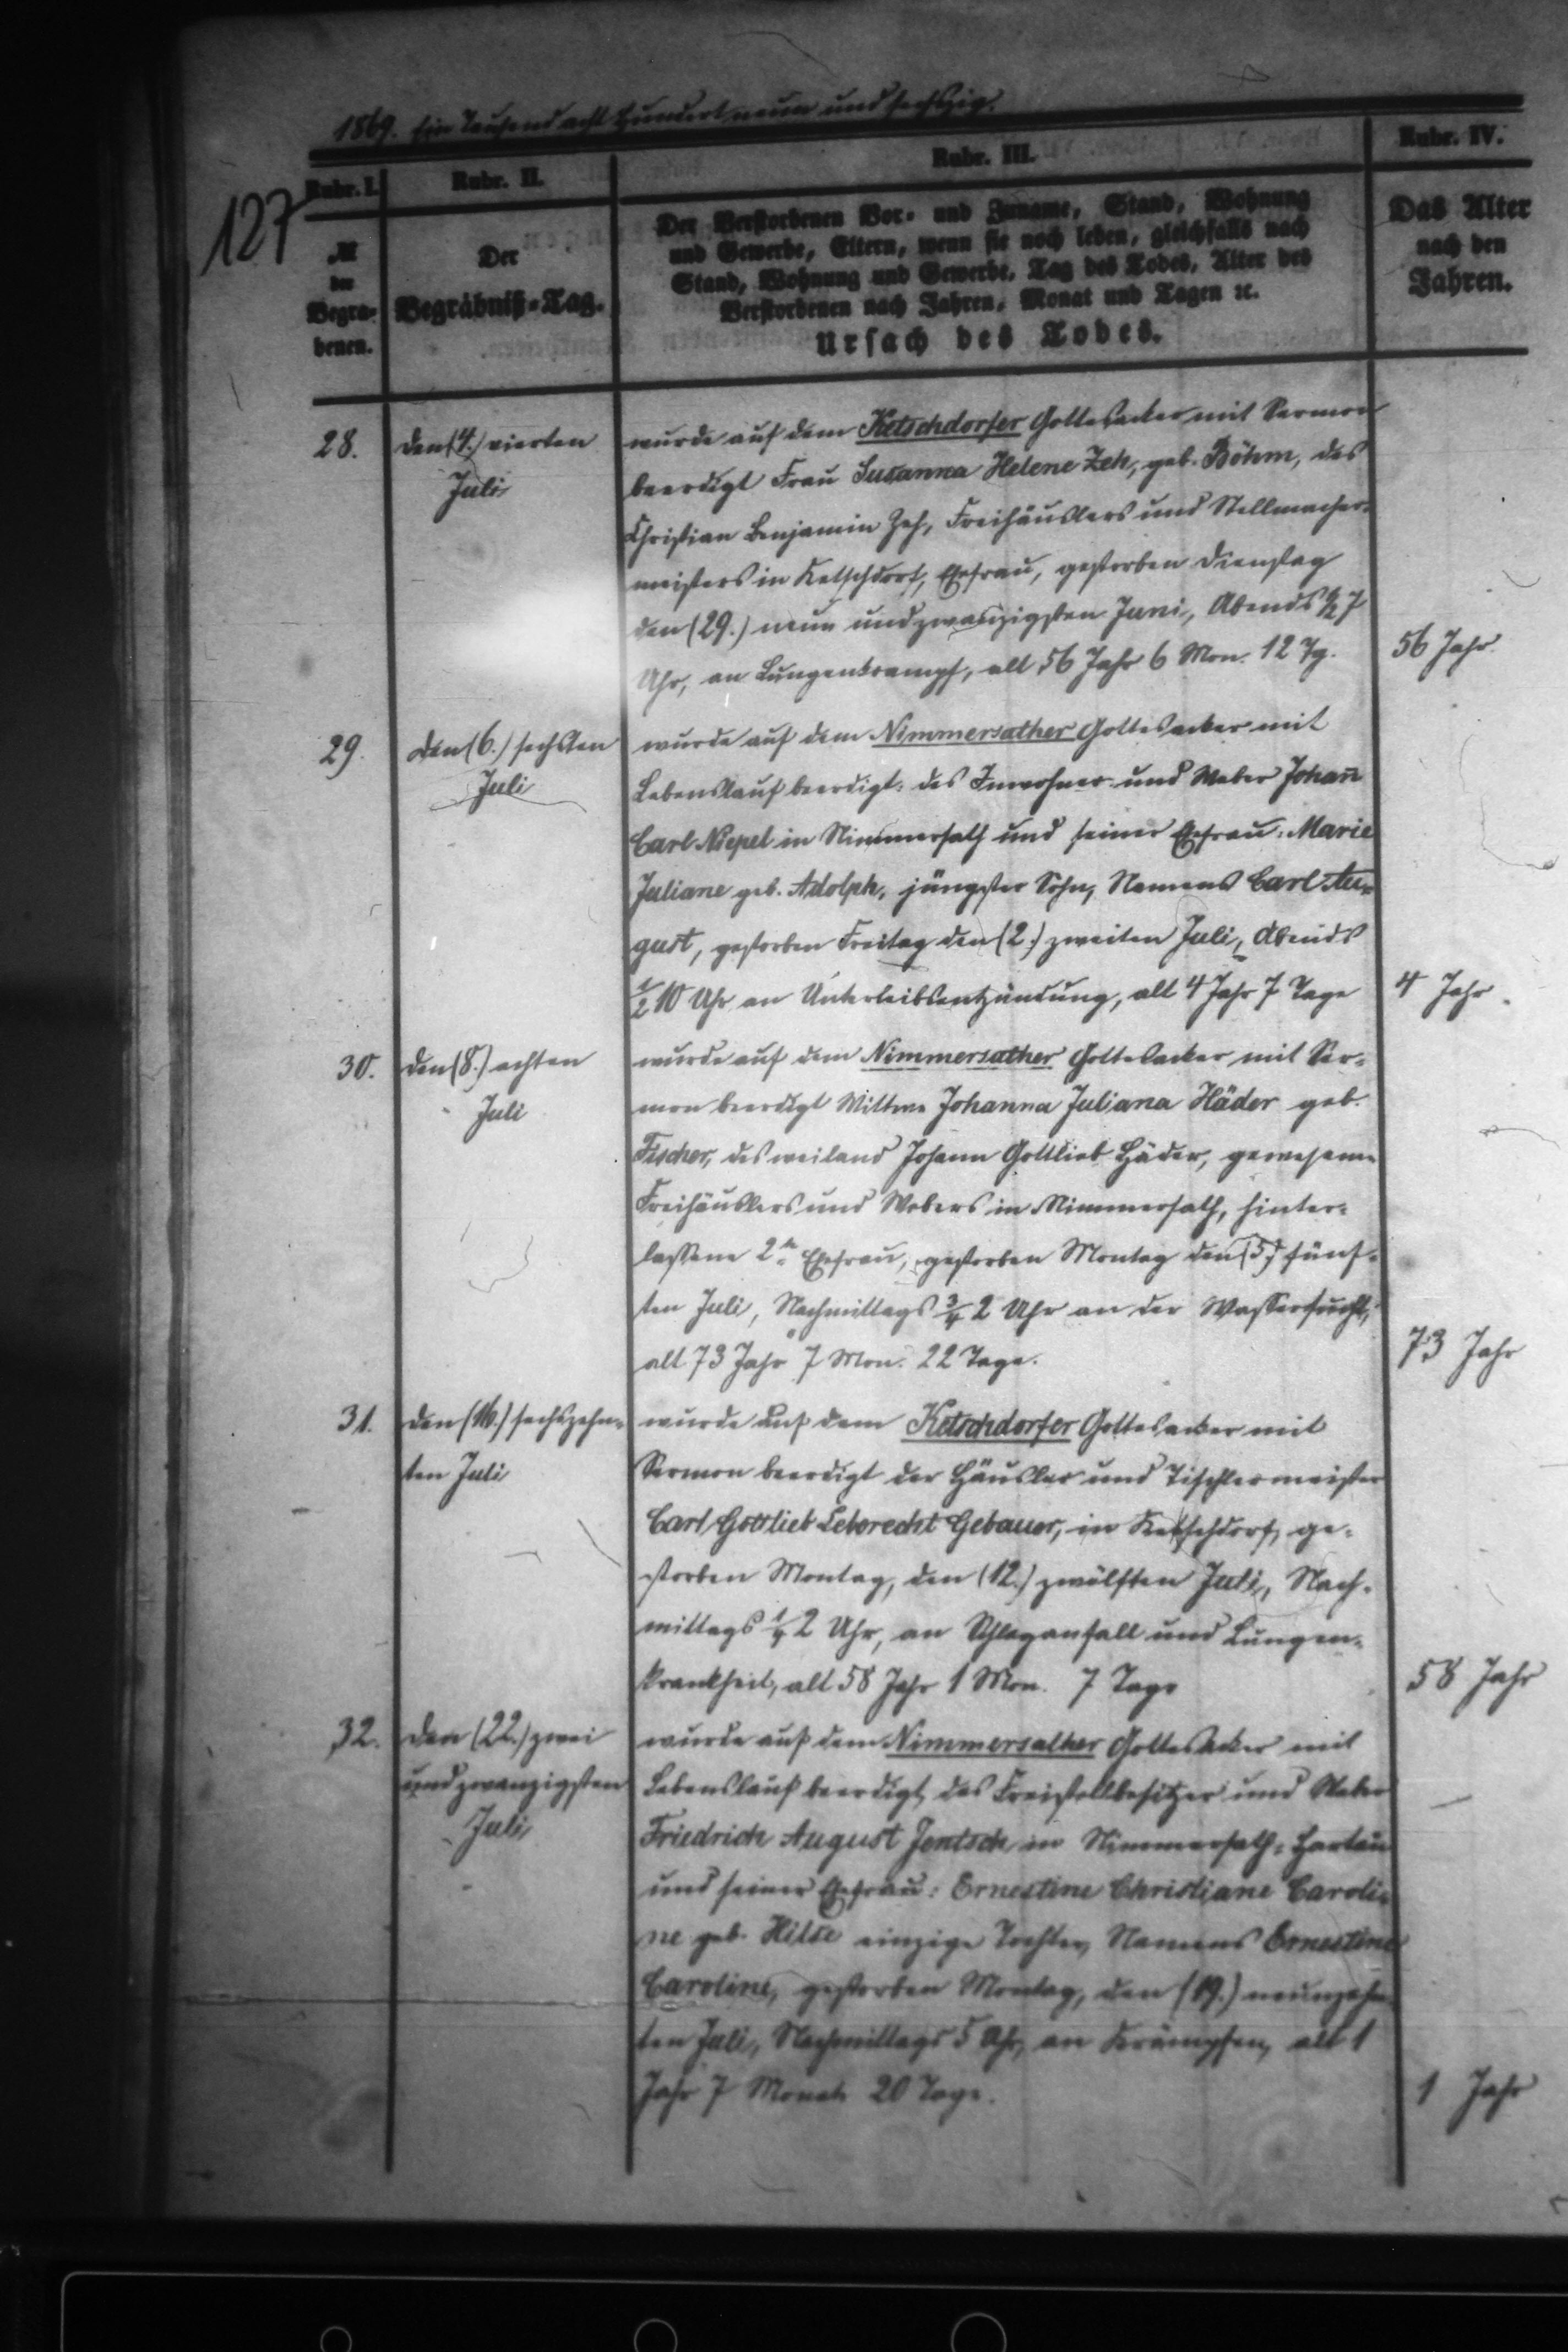 1869. Ein Tausend acht Hundert neun und sechszig.
127
Rubr. I. Rubr. II. Rubr. III. Rubr. IV.
№ der Begrabenen.
Der Begräbniß-Tag.
Der Verstorbenen Vor- und Zuname, Stand, Wohnung
und Gewerbe, Eltern, wenn sie noch leben, gleichfalls nach
Stand, Wohnung und Gewerbe, Tag des Todes, Alter des
Verstorbenen nach Jahren, Monat und Tagen ꝛc.
Ursach des Todes.
Das Alter
nach den
Jahren.
28. den (4.) vierten
Juli
wurde auf dem Ketschdorfer Gottesacker mit Sermon
beerdigt Frau Susanna Helene Zeh, geb. Böhm, des
Christian Benjamin Zeh, Freihäuslers und Stellmacher-
meisters in Ketschdorf, Ehefrau, gestorben Dienstag
den (29.) neun und zwanzigsten Juni, Abends 1/2 7
Uhr, an Lungenkrampf, alt 56 Jahr 6 Mon. 12 Tg. 56 Jahr.
29. den (6.) sechsten
Juli
wurde auf dem Nimmersather Gottesacker mit
Lebenslauf beerdigt: des Inwohner und Weber Johan̄
Carl Niepel in Nimmersath und seiner Ehefrau: Marie
Juliane geb. Adolph, jüngster Sohn, Namens Carl Au-
gust, gestorben Freitag den (2.) zweiten Juli, Abends
1/2 10 Uhr an Unterleibsentzündung, alt 4 Jahr 7 Tage 4 Jahr.
30. den (8.) achten
Juli
wurde auf dem Nimmersather Gottesacker mit Ser-
mon beerdigt Wittwe Johanna Juliana Häder geb.
Fischer, des weiland Johann Gottlieb Häder, gewesenen
Freihäuslers und Webers in Nimmersath, hinter-
lassene 2te Ehefrau, gestorben Montag den (5.) fünf-
ten Juli, Nachmittags 3/4 2 Uhr an der Wassersucht,
alt 73 Jahr 7 Mon. 22 Tage. 73 Jahr
31. den (16.) sechszehn-
ten Juli
wurde auf dem Ketschdorfer Gottesacker mit
Sermon beerdigt der Häusler und Tischlermeister
Carl Gottlieb Lebrecht Gebauer, in Ketschdorf, ge-
storben Montag, den (12.) zwölften Juli, Nach-
mittags 1/4 2 Uhr, an Schlaganfall und Lungen-
krankheit, alt 58 Jahr 1 Mon. 7 Tage 58 Jahr
32. den (22.) zwei
und zwanzigsten
Juli
wurde auf dem Nimmersather Gottesacker mit
Lebenslauf beerdigt, des Freistellbesitzer und Weber
Friedrich August Jentsch in Nimmersath-Hartau
und seiner Ehefrau: Ernestine Christiane Caroli-
ne geb. Hilse einzige Tochter, Namens Ernestine
Caroline, gestorben Montag, den (19.) neunzehn-
ten Juli, Nachmittags 5 Uhr, an Krämpfen, alt 1
Jahr 7 Monate 20 Tage. 1 Jahr